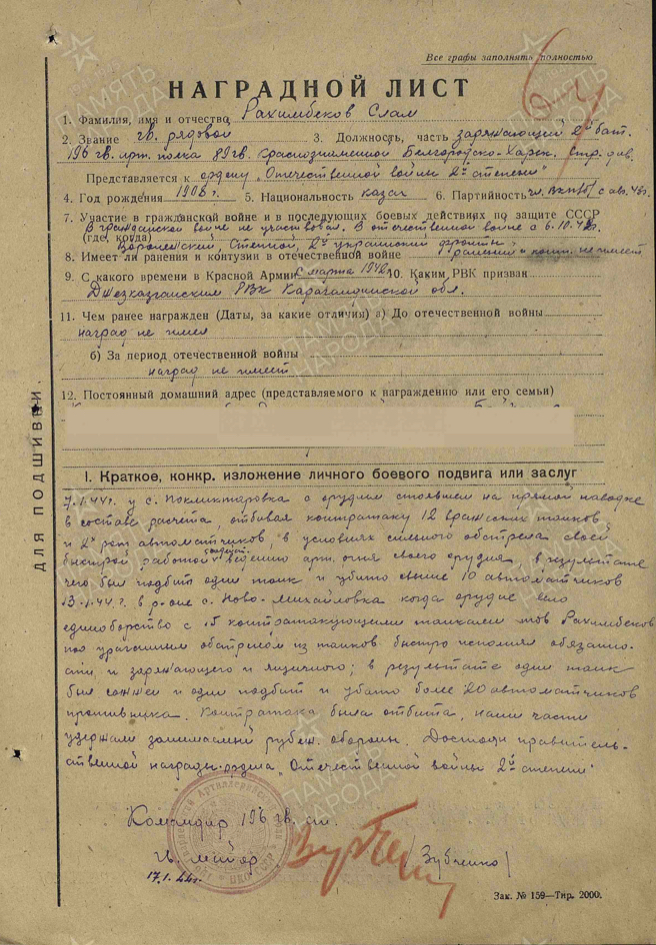 Все графы заполнять полностью
НАГРАДНОЙ ЛИСТ
1. Фамилия, имя и отчество Рахимбеков Слам
2. Звание гв. рядовой 3. Должность, часть заряжающий 2й бат.
196 гв. арт. полка 89 гв. краснознаменной Белгородско-Харьк. стр. див.
Представляется к ордену „Отечественной войны 2й степени"
4. Год рождения 1908 г. 5. Национальность казах 6. Партийность чл. ВКП/б/ с
7. Участие в гражданской войне и в последующих боевых действиях по защите СССР
В гражданской войне не участвовал. В отечественной войне с 6.10.42г.
(где, когда)
Воронежский, Степной, 2й украинский фронты
8. Имеет ли ранения и контузии в отечественной войне ранений и конт. не имеет
9. С какого времени в Красной Армии с марта 1942 10. Каким РВК призван
Джезказганским РВК Карагандинской обл.
11. Чем ранее награжден (Даты, за какие отличия) а) До отечественной войны
наград не имел
б) За период отечественной войны
наград не имеет
12. Постоянный домашний адрес (представляемого к награждению или его семьи)
I. Краткое, конкр. изложение личного боевого подвига или заслуг
7.1.44г. у с. с орудием стоявшем на прямой наводке
в составе расчета, отбивая контратаку 12 вражеских танков
и 2х рот автоматчиков, в условиях сильного обстрела своей
быстрой работой содейст. ведению арт. огня своего орудия, в результате
чего был подбит один танк и убито свыше 10 автоматчиков
13.1.44г. в р-оне с. Ново-Михайловка когда орудие вело
единоборство с 15 контратакующими танками тов Рахимбеков
под ураганным обстрелом из танков быстро исполнял обязанно-
сти и заряжающего и ящичного; в результате один танк
был сожжен и один подбит и убито более 20 автоматчиков
противника. Контратака была отбита, наши части
удержали занимаемый рубеж обороны. Достоин правитель-
ственной награды ордена „Отечественной войны 2й степени"
Командир 196 гв. ап.
гв. майор /Зубченко/
17.1.44г.
Зак. № 159—Тир. 2000.
ДЛЯ ПОДШИВКИ.
ПАМЯТЬ НАРОДА